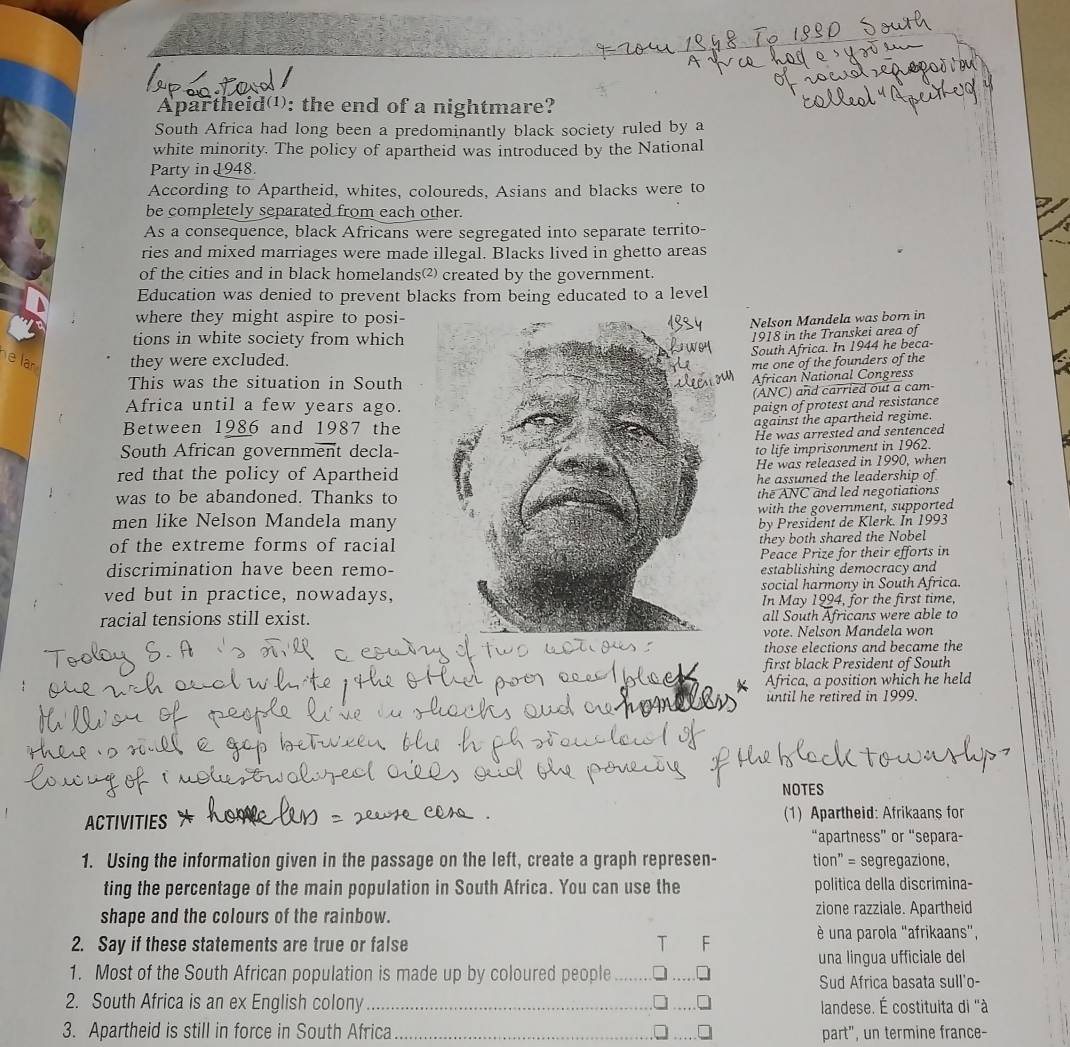 From 1948 To 1990 South
Africa had a system
of racial segregation
called "Aparthed"
Apartheid(1): the end of a nightmare?
South Africa had long been a predominantly black society ruled by a
white minority. The policy of apartheid was introduced by the National
Party in 1948.
According to Apartheid, whites, coloureds, Asians and blacks were to
be completely separated from each other.
As a consequence, black Africans were segregated into separate territo-
ries and mixed marriages were made illegal. Blacks lived in ghetto areas
of the cities and in black homelands(2) created by the government.
Education was denied to prevent blacks from being educated to a level
where they might aspire to posi-
tions in white society from which
they were excluded.
This was the situation in South
Africa until a few years ago.
Between 1986 and 1987 the
South African government decla-
red that the policy of Apartheid
was to be abandoned. Thanks to
men like Nelson Mandela many
of the extreme forms of racial
discrimination have been remo-
ved but in practice, nowadays,
racial tensions still exist.
1994
Nelson Mandela was born in
1918 in the Transkei area of
South Africa. In 1944 he beca-
me one of the founders of the
African National Congress
(ANC) and carried out a cam-
paign of protest and resistance
against the apartheid regime.
He was arrested and sentenced
to life imprisonment in 1962.
He was released in 1990, when
he assumed the leadership of
the ANC and led negotiations
with the government, supported
by President de Klerk. In 1993
they both shared the Nobel
Peace Prize for their efforts in
establishing democracy and
social harmony in South Africa.
In May 1994, for the first time,
all South Africans were able to
vote. Nelson Mandela won
those elections and became the
first black President of South
Africa, a position which he held
until he retired in 1999.
Today S. A is still a country of two nations:
one rich and white, the other poor and black
Million of people live in shacks and are homeless*
there is still a gap between the high standard of
living of industrialized areas and the poverty of the black township
he lan
ACTIVITIES * homeless = senza casa.
1. Using the information given in the passage on the left, create a graph represen-
ting the percentage of the main population in South Africa. You can use the
shape and the colours of the rainbow.
2. Say if these statements are true or false T F
1. Most of the South African population is made up by coloured people ........ ☐ ..... ☐
2. South Africa is an ex English colony ........ ☐ ..... ☐
3. Apartheid is still in force in South Africa ........ ☐ ..... ☐
NOTES
(1) Apartheid: Afrikaans for
"apartness" or "separa-
tion" = segregazione,
politica della discrimina-
zione razziale. Apartheid
è una parola "afrikaans",
una lingua ufficiale del
Sud Africa basata sull'o-
landese. É costituita di "à
part", un termine france-